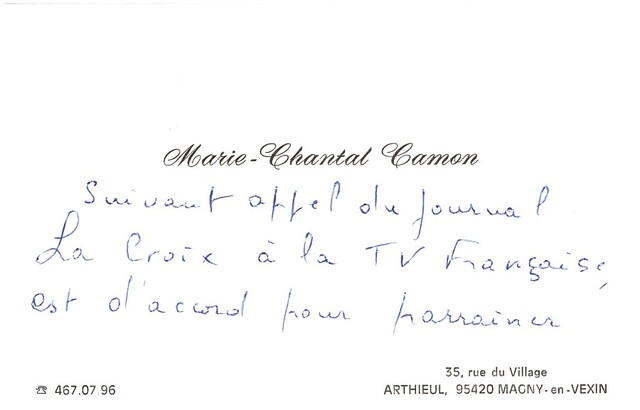 Marie-Chantal Camon
Suivant appel du journal
La Croix à la TV Française,
est d'accord pour parrainer
35, rue du Village
☎ 467.07.96 ARTHIEUL, 95420 MAGNY-en-VEXIN